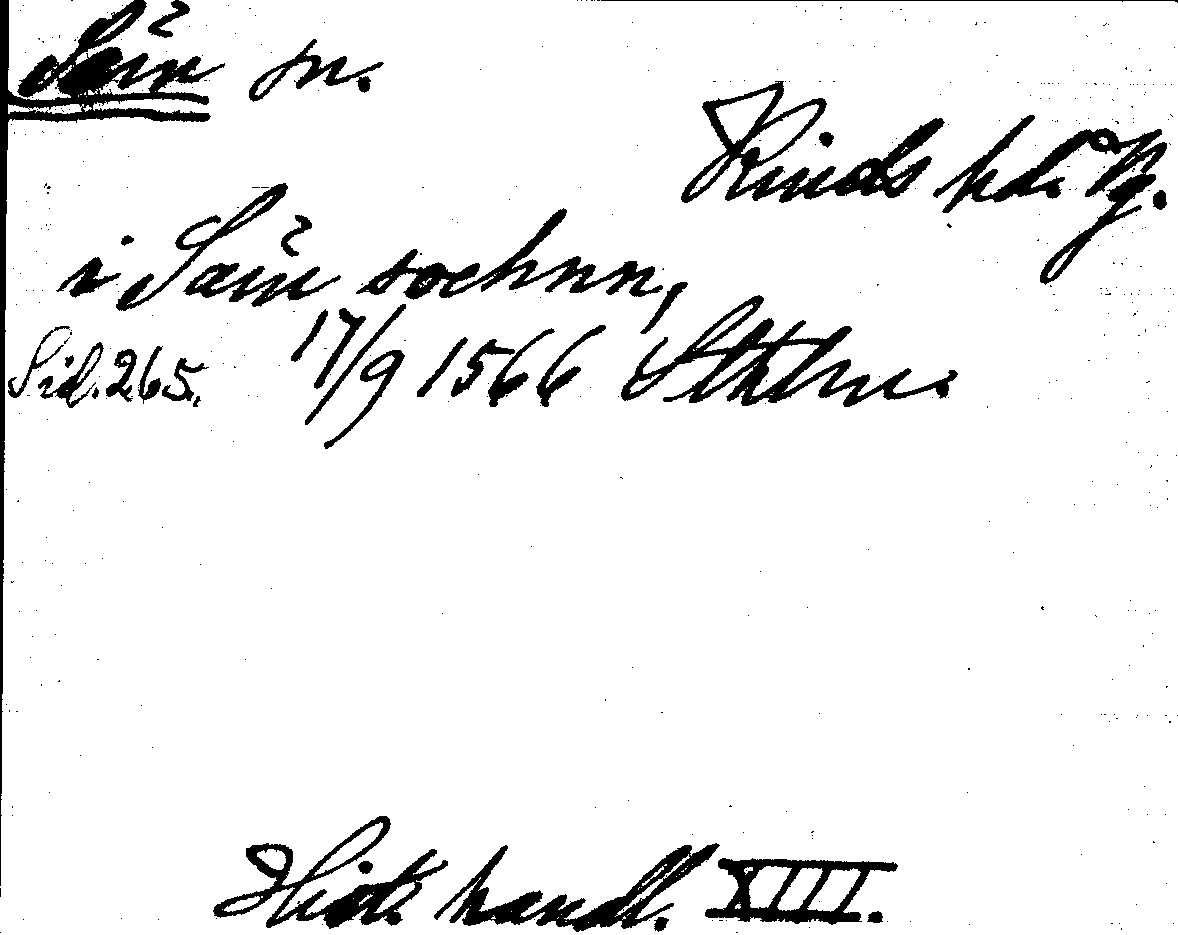 Säm sn.
Kinds hd. Vg.
i Säm sochnn,
Sid. 265. 17/9 1566 Sthlm.
Hist. handl. XIII.